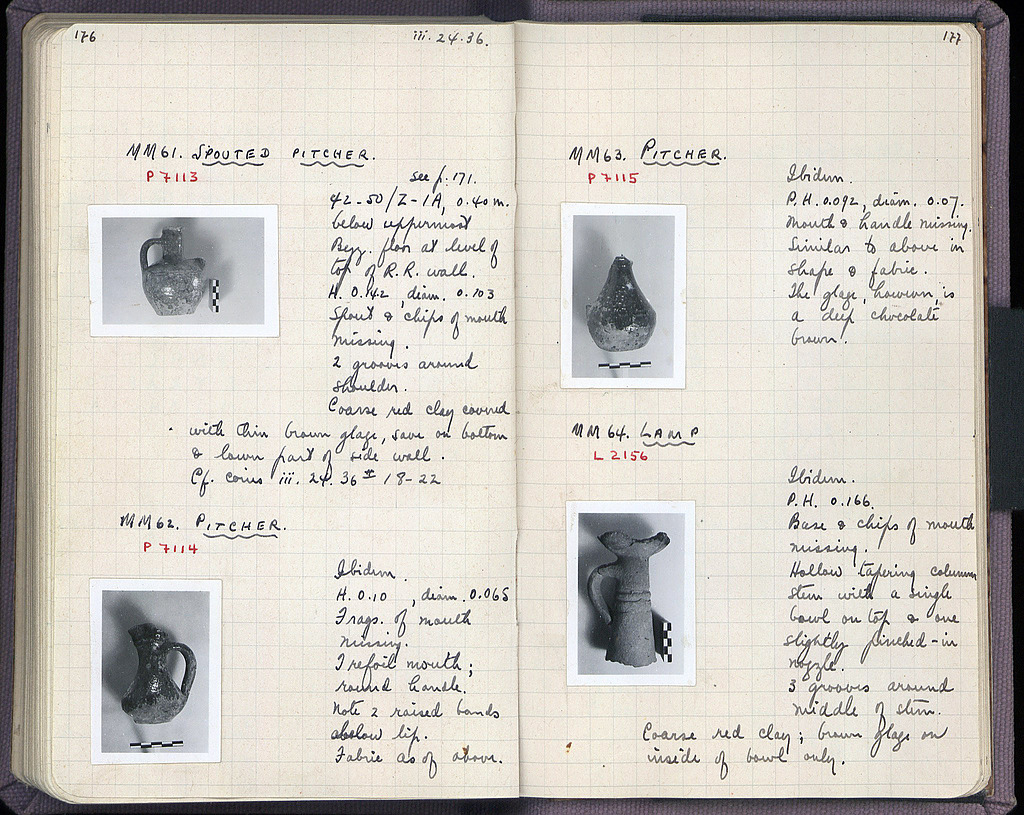 176
iii. 24. 36.
MM61. SPOUTED PITCHER.
P 7113
see p. 171.
42-50/Z-1A, 0.40 m.
below uppermost
Byz. floor at level of
top of R.R. wall.
H. 0.142, diam. 0.103
Spout & chips of mouth
missing.
2 grooves around
shoulder.
Coarse red clay covered
with thin brown glaze, save on bottom
& lower part of side wall.
Cf. coins iii. 24. 36 # 18-22
MM62. PITCHER.
P 7114
Ibidem.
H. 0.10, diam. 0.065
Frags. of mouth
missing.
Trefoil mouth;
round handle.
Note 2 raised bands
below lip.
Fabric as of above.
177
MM63. PITCHER.
P 7115
Ibidem.
P.H. 0.092, diam. 0.07.
Mouth & handle missing.
Similar to above in
shape & fabric.
The glaze, however, is
a deep chocolate
brown.
MM64. LAMP
L 2156
Ibidem.
P.H. 0.166.
Base & chips of mouth
missing.
Hollow tapering column
stem with a single
bowl on top & one
slightly pinched-in
nozzle.
3 grooves around
middle of stem.
Coarse red clay; brown glaze on
inside of bowl only.